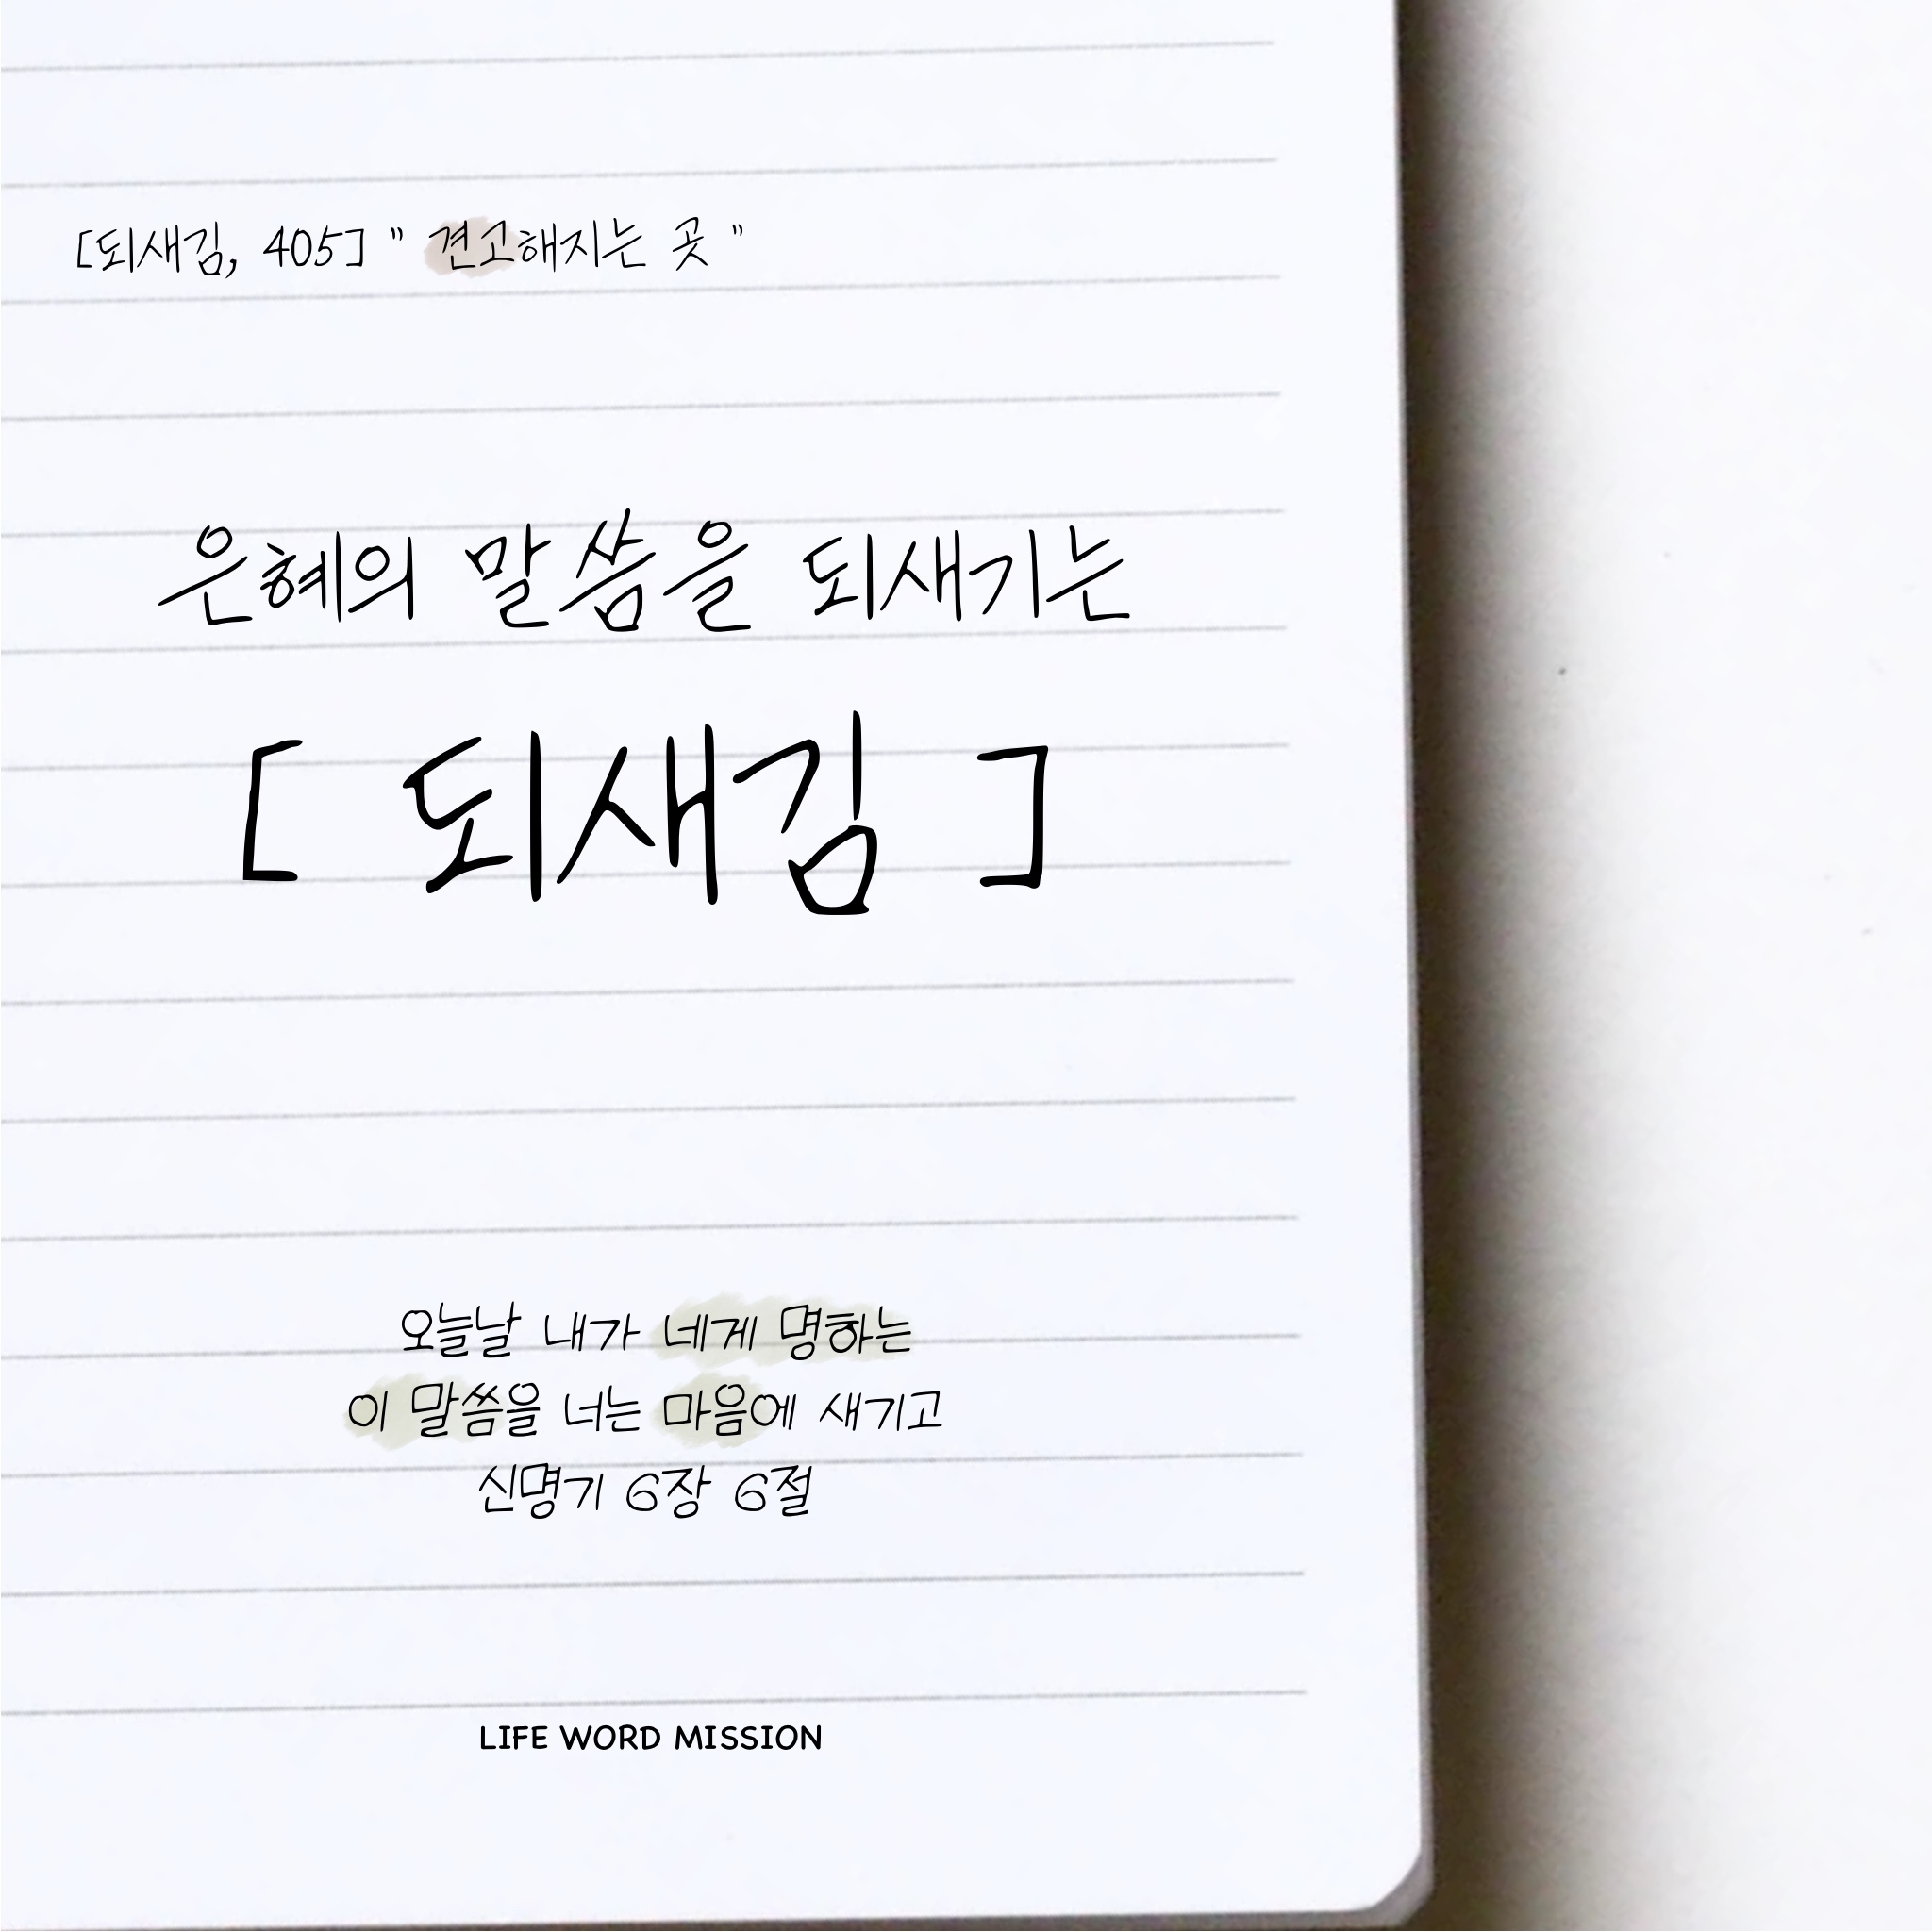 [되새김, 405] " 견고해지는 곳 "
은혜의 말씀을 되새기는
[ 되새김 ]
오늘날 내가 네게 명하는
이 말씀을 너는 마음에 새기고
신명기 6장 6절
LIFE WORD MISSION